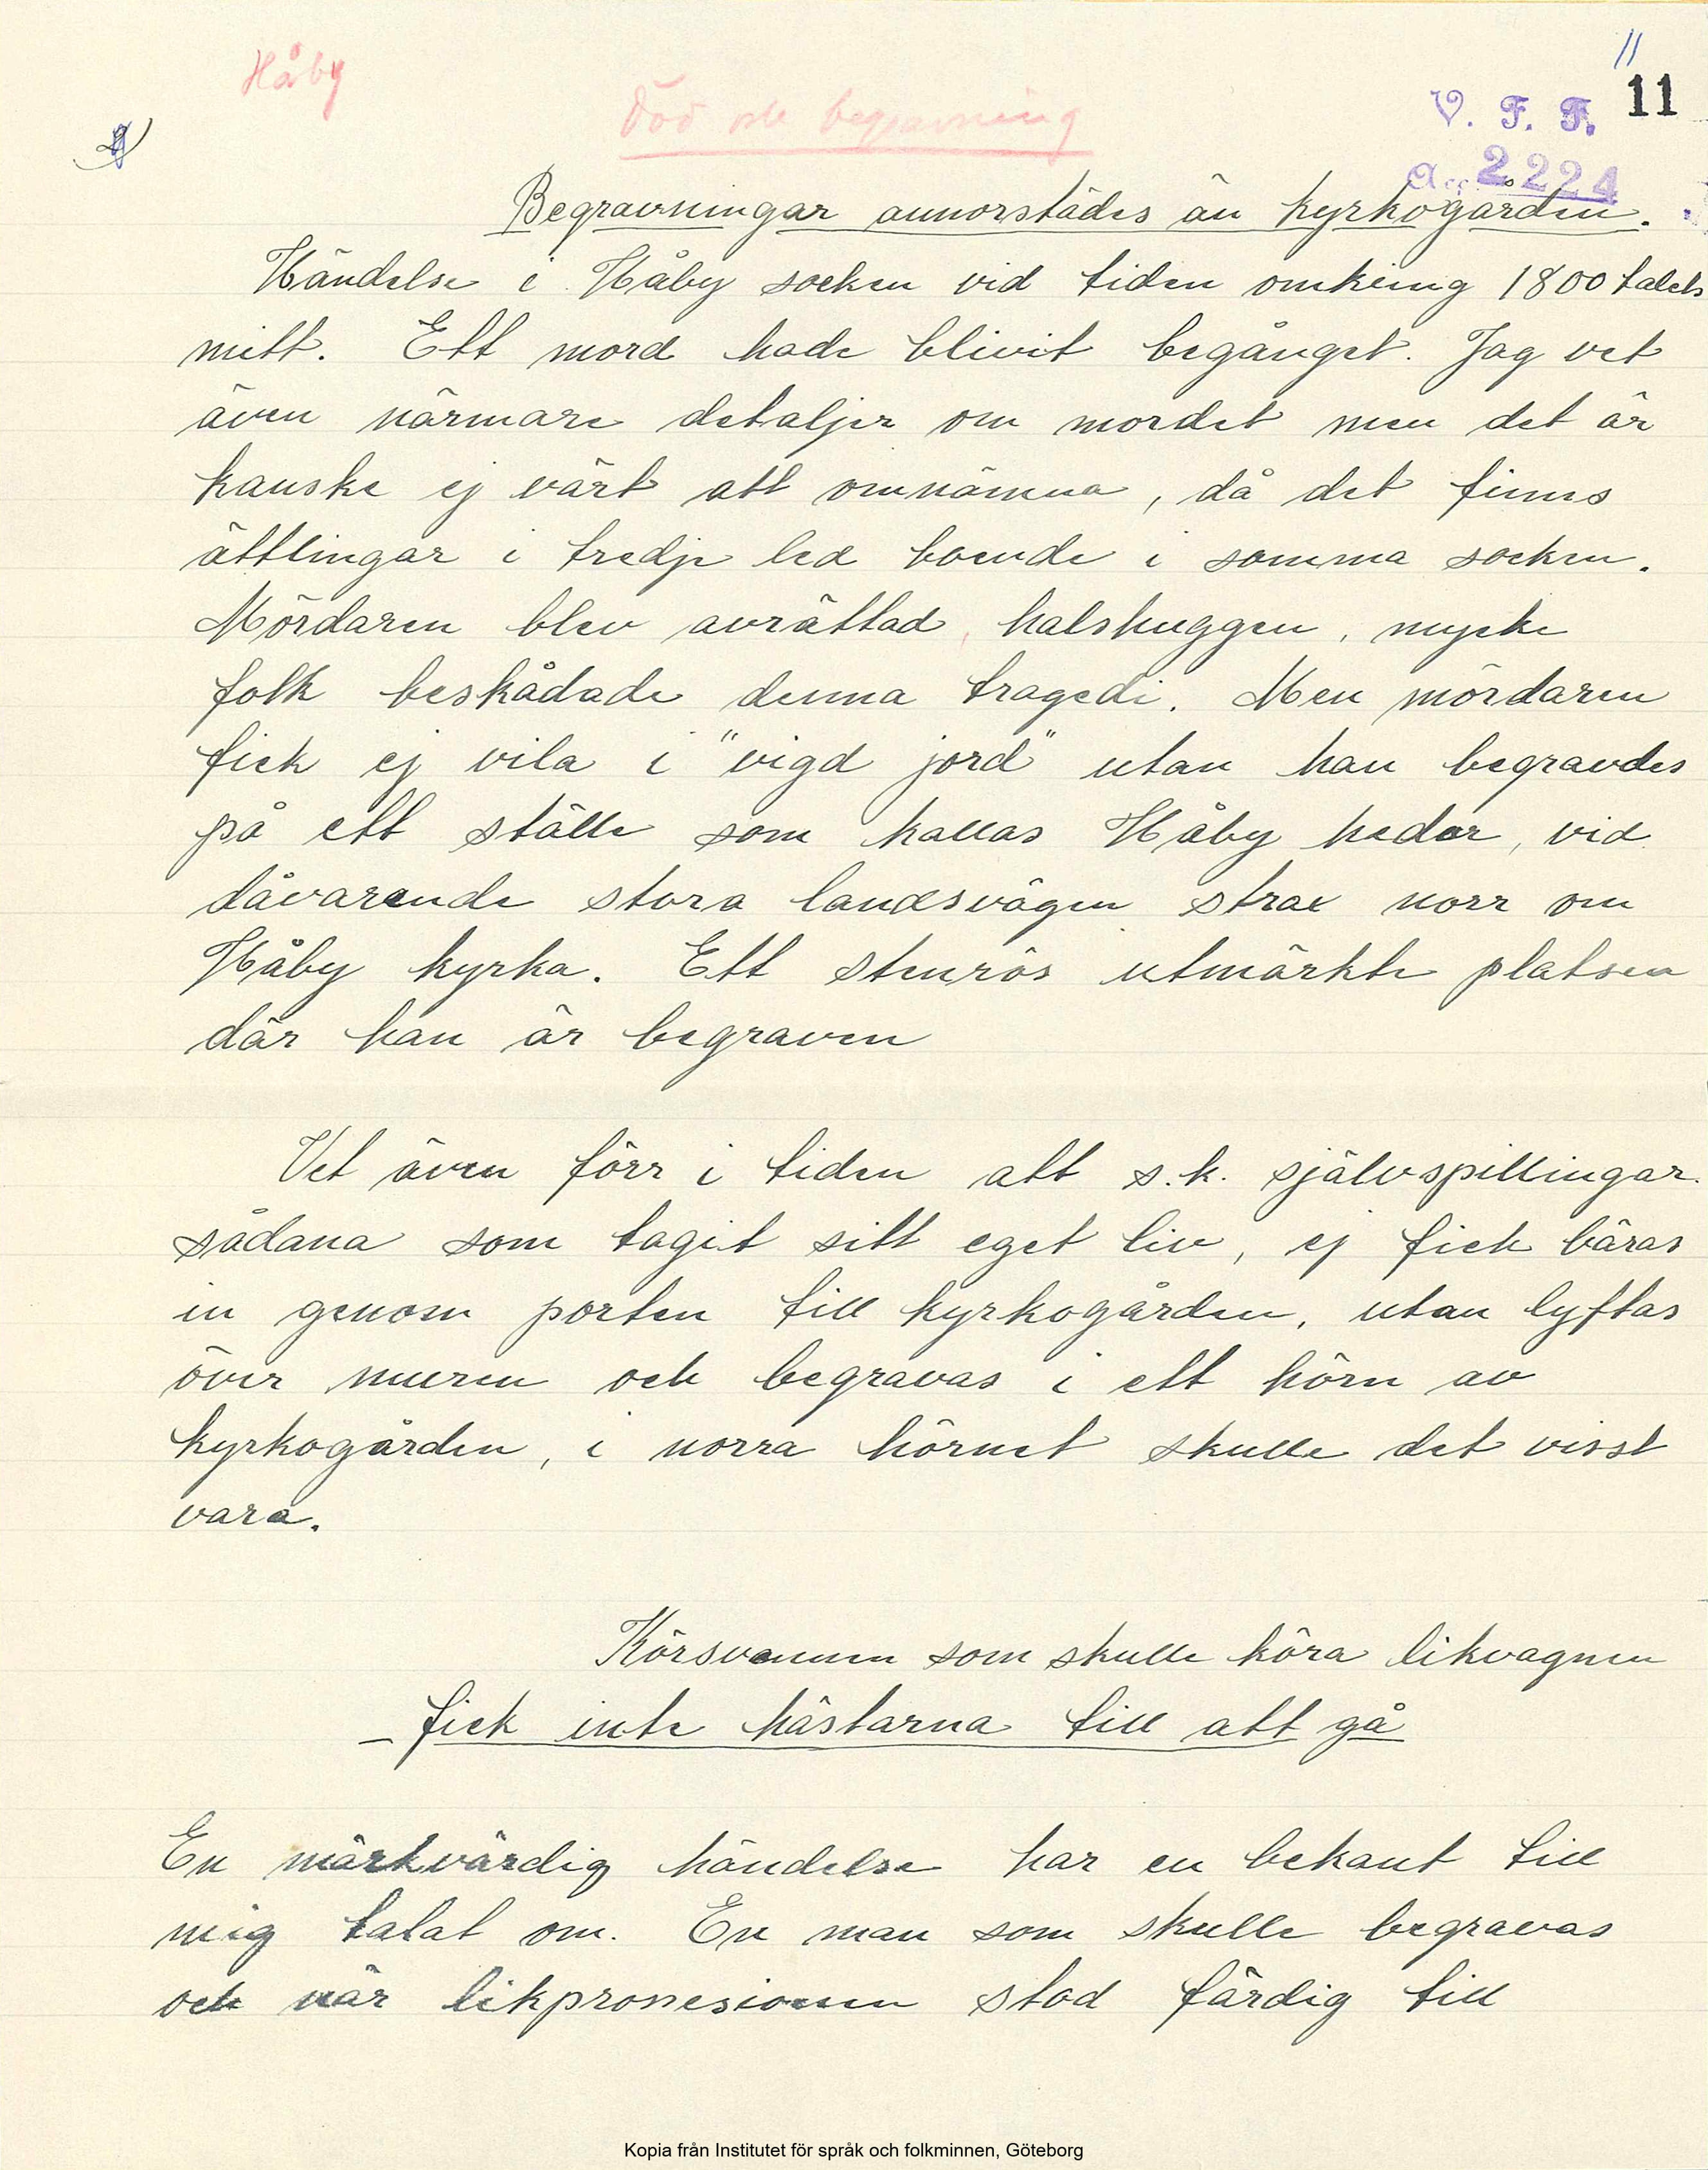 Håby
11
11
Död och begravning
V. F. F.
2224
Begravningar annorstädes än kyrkogården.
Händelse i Håby socken vid tiden omkring 1800 talets
mitt. Ett mord hade blivit begånget. Jag vet
även närmare detaljer om mordet men det är
kanske ej värt att omnämna, då det finns
ättlingar i tredje led boende i samma socken.
Mördaren blev avrättad, halshuggen, mycke
folk beskådade denna tragedi. Men mördaren
fick ej vila i "vigd jord" utan han begravdes
på ett ställe som kallas Håby hedar, vid
dåvarande stora landsvägen strax norr om
Håby kyrka. Ett stenrös utmärkte platsen
där han är begraven
Vet även förr i tiden att s.k. självspillingar.
sådana som tagit sitt eget liv, ej fick bäras
in genom porten till kyrkogården, utan lyftas
över muren och begravas i ett hörn av
kyrkogården, i norra hörnet skulle det visst
vara.
Körsvennen som skulle köra likvagnen
- fick inte hästarna till att gå
En märkvärdig händelse har en bekant till
mig talat om. En man som skulle begravas
och när likprosesionen stod färdig till
Kopia från Institutet för språk och folkminnen, Göteborg